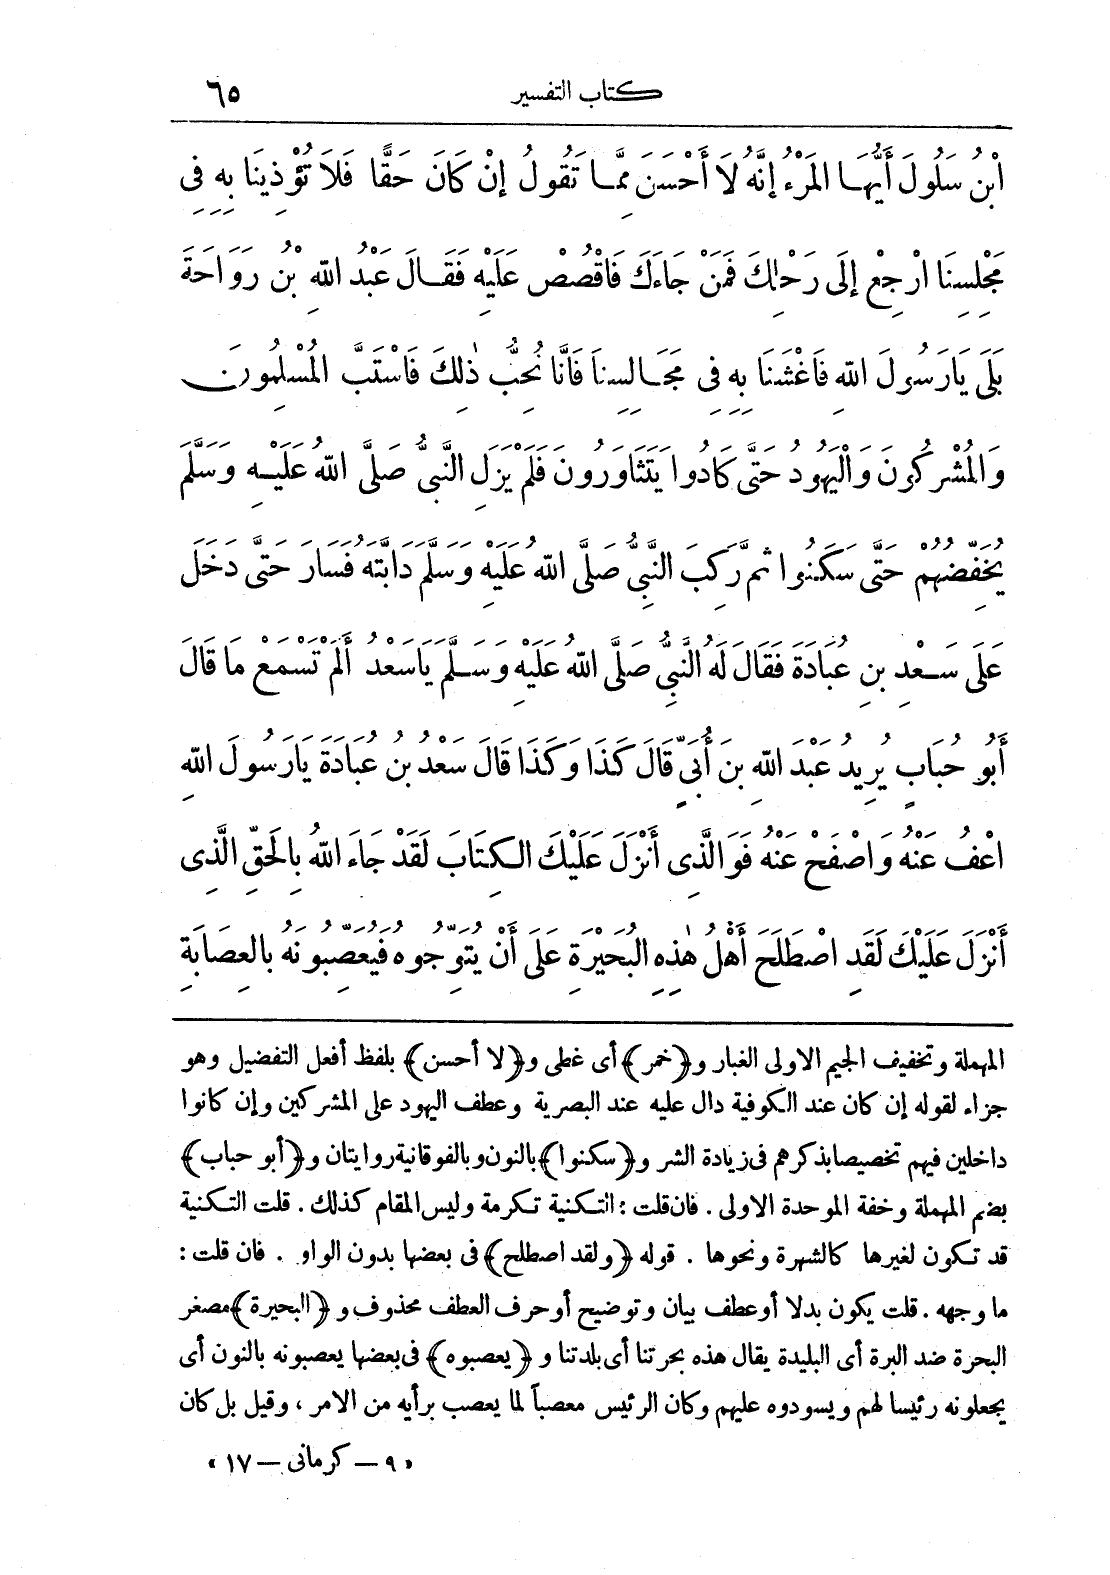 كتاب التفسير ٦٥
ابْنُ سَلُولَ أَيُّهَا الْمَرْءُ إِنَّهُ لَا أَحْسَنَ مِمَّا تَقُولُ إِنْ كَانَ حَقًّا فَلَا تُؤْذِينَا بِهِ فِى
مَجْلِسِنَا ارْجِعْ إِلَى رَحْلِكَ فَمَنْ جَاءَكَ فَاقْصُصْ عَلَيْهِ فَقَالَ عَبْدُ اللهِ بْنُ رَوَاحَةَ
بَلَى يَارَسُولَ اللهِ فَاغْشَنَا بِهِ فِى مَجَالِسِنَا فَانَّا نُحِبُّ ذٰلِكَ فَاسْتَبَّ الْمُسْلِمُونَ
وَالْمُشْرِكُونَ وَالْيَهُودُ حَتَّى كَادُوا يَتَثَاوَرُونَ فَلَمْ يَزَلِ النَّبِىُّ صَلَّى اللهُ عَلَيْهِ وَسَلَّمَ
يُخَفِّضُهُمْ حَتَّى سَكَنُوا ثُمَّ رَكِبَ النَّبِىُّ صَلَّى اللهُ عَلَيْهِ وَسَلَّمَ دَابَّتَهُ فَسَارَ حَتَّى دَخَلَ
عَلَى سَعْدِ بنِ عُبَادَةَ فَقَالَ لَهُ النَّبِىُّ صَلَّى اللهُ عَلَيْهِ وَسَلَّمَ يَاسَعْدُ أَلَمْ تَسْمَعْ مَا قَالَ
أَبُو حُبَابٍ يُرِيدُ عَبْدَ اللهِ بنَ أُبَىٍّ قَالَ كَذَا وَكَذَا قَالَ سَعْدُ بنُ عُبَادَةَ يَارَسُولَ اللهِ
اعْفُ عَنْهُ وَاصْفَحْ عَنْهُ فَوَالَّذِى أَنْزَلَ عَلَيْكَ الكِتَابَ لَقَدْ جَاءَ اللهُ بِالْحَقِّ الَّذِى
أَنْزَلَ عَلَيْكَ لَقَدِ اصْطَلَحَ أَهْلُ هٰذِهِ البُحَيْرَةِ عَلَى أَنْ يُتَوِّجُوهُ فَيُعَصِّبُونَهُ بِالعِصَابَةِ
المهملة وتخفيف الجيم الاولى الغبار و﴿خمر﴾ أى غطى و﴿لا أحسن﴾ بلفظ أفعل التفضيل وهو
جزاء لقوله إن كان عند الكوفية دال عليه عند البصرية وعطف اليهود على المشركين وإن كانوا
داخلين فيهم تخصيصا بذكرهم فى زيادة الشر و﴿سكنوا﴾ بالنون وبالفوقانية روايتان و﴿أبو حباب﴾
بضم المهملة وخفة الموحدة الاولى . فان قلت : التكنية تكرمة وليس المقام كذلك . قلت التكنية
قد تكون لغيرها كالشهرة ونحوها . قوله ﴿ولقد اصطلح﴾ فى بعضها بدون الواو . فان قلت :
ما وجهه . قلت يكون بدلا أو عطف بيان وتوضيح أو حرف العطف محذوف و﴿البحيرة﴾ مصغر
البحرة ضد البرة أى البليدة يقال هذه بحرتنا أى بلدتنا و﴿يعصبوه﴾ فى بعضها يعصبونه بالنون أى
يجعلونه رئيسا لهم ويسودوه عليهم وكان الرئيس معصباً لما يعصب برأيه من الامر ، وقيل بل كان
« ٩ – كرمانى – ١٧ »